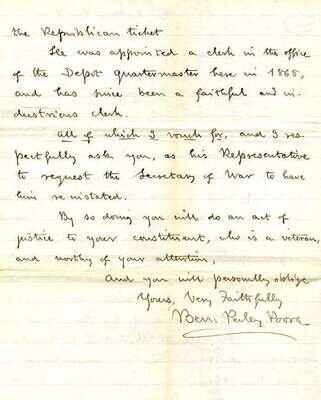 the Republican ticket
He was appointed a clerk in the office
of the Depot Quartermaster here in 1865,
and has since been a faithful and in-
dustrious clerk.
All of which I vouch for, and I res-
pectfully ask you, as his Representative
to request the Secretary of War to have
him re-instated.
By so doing you will do an act of
justice to your constituent, who is a veteran,
and worthy of your attention,
And you will personally oblige
Yours, Very Faithfully
Ben: Perley Poore